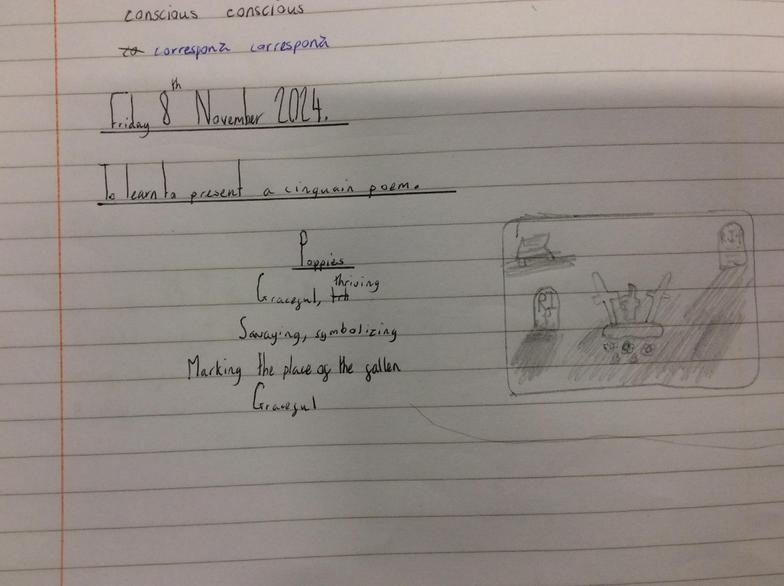 conscious conscious
correspond correspond
Friday 8th November 2024.
To learn to present a cinquain poem.
Poppies
Graceful, thriving
Swaying, symbolizing
Marking the place of the fallen
Graceful
RI
P